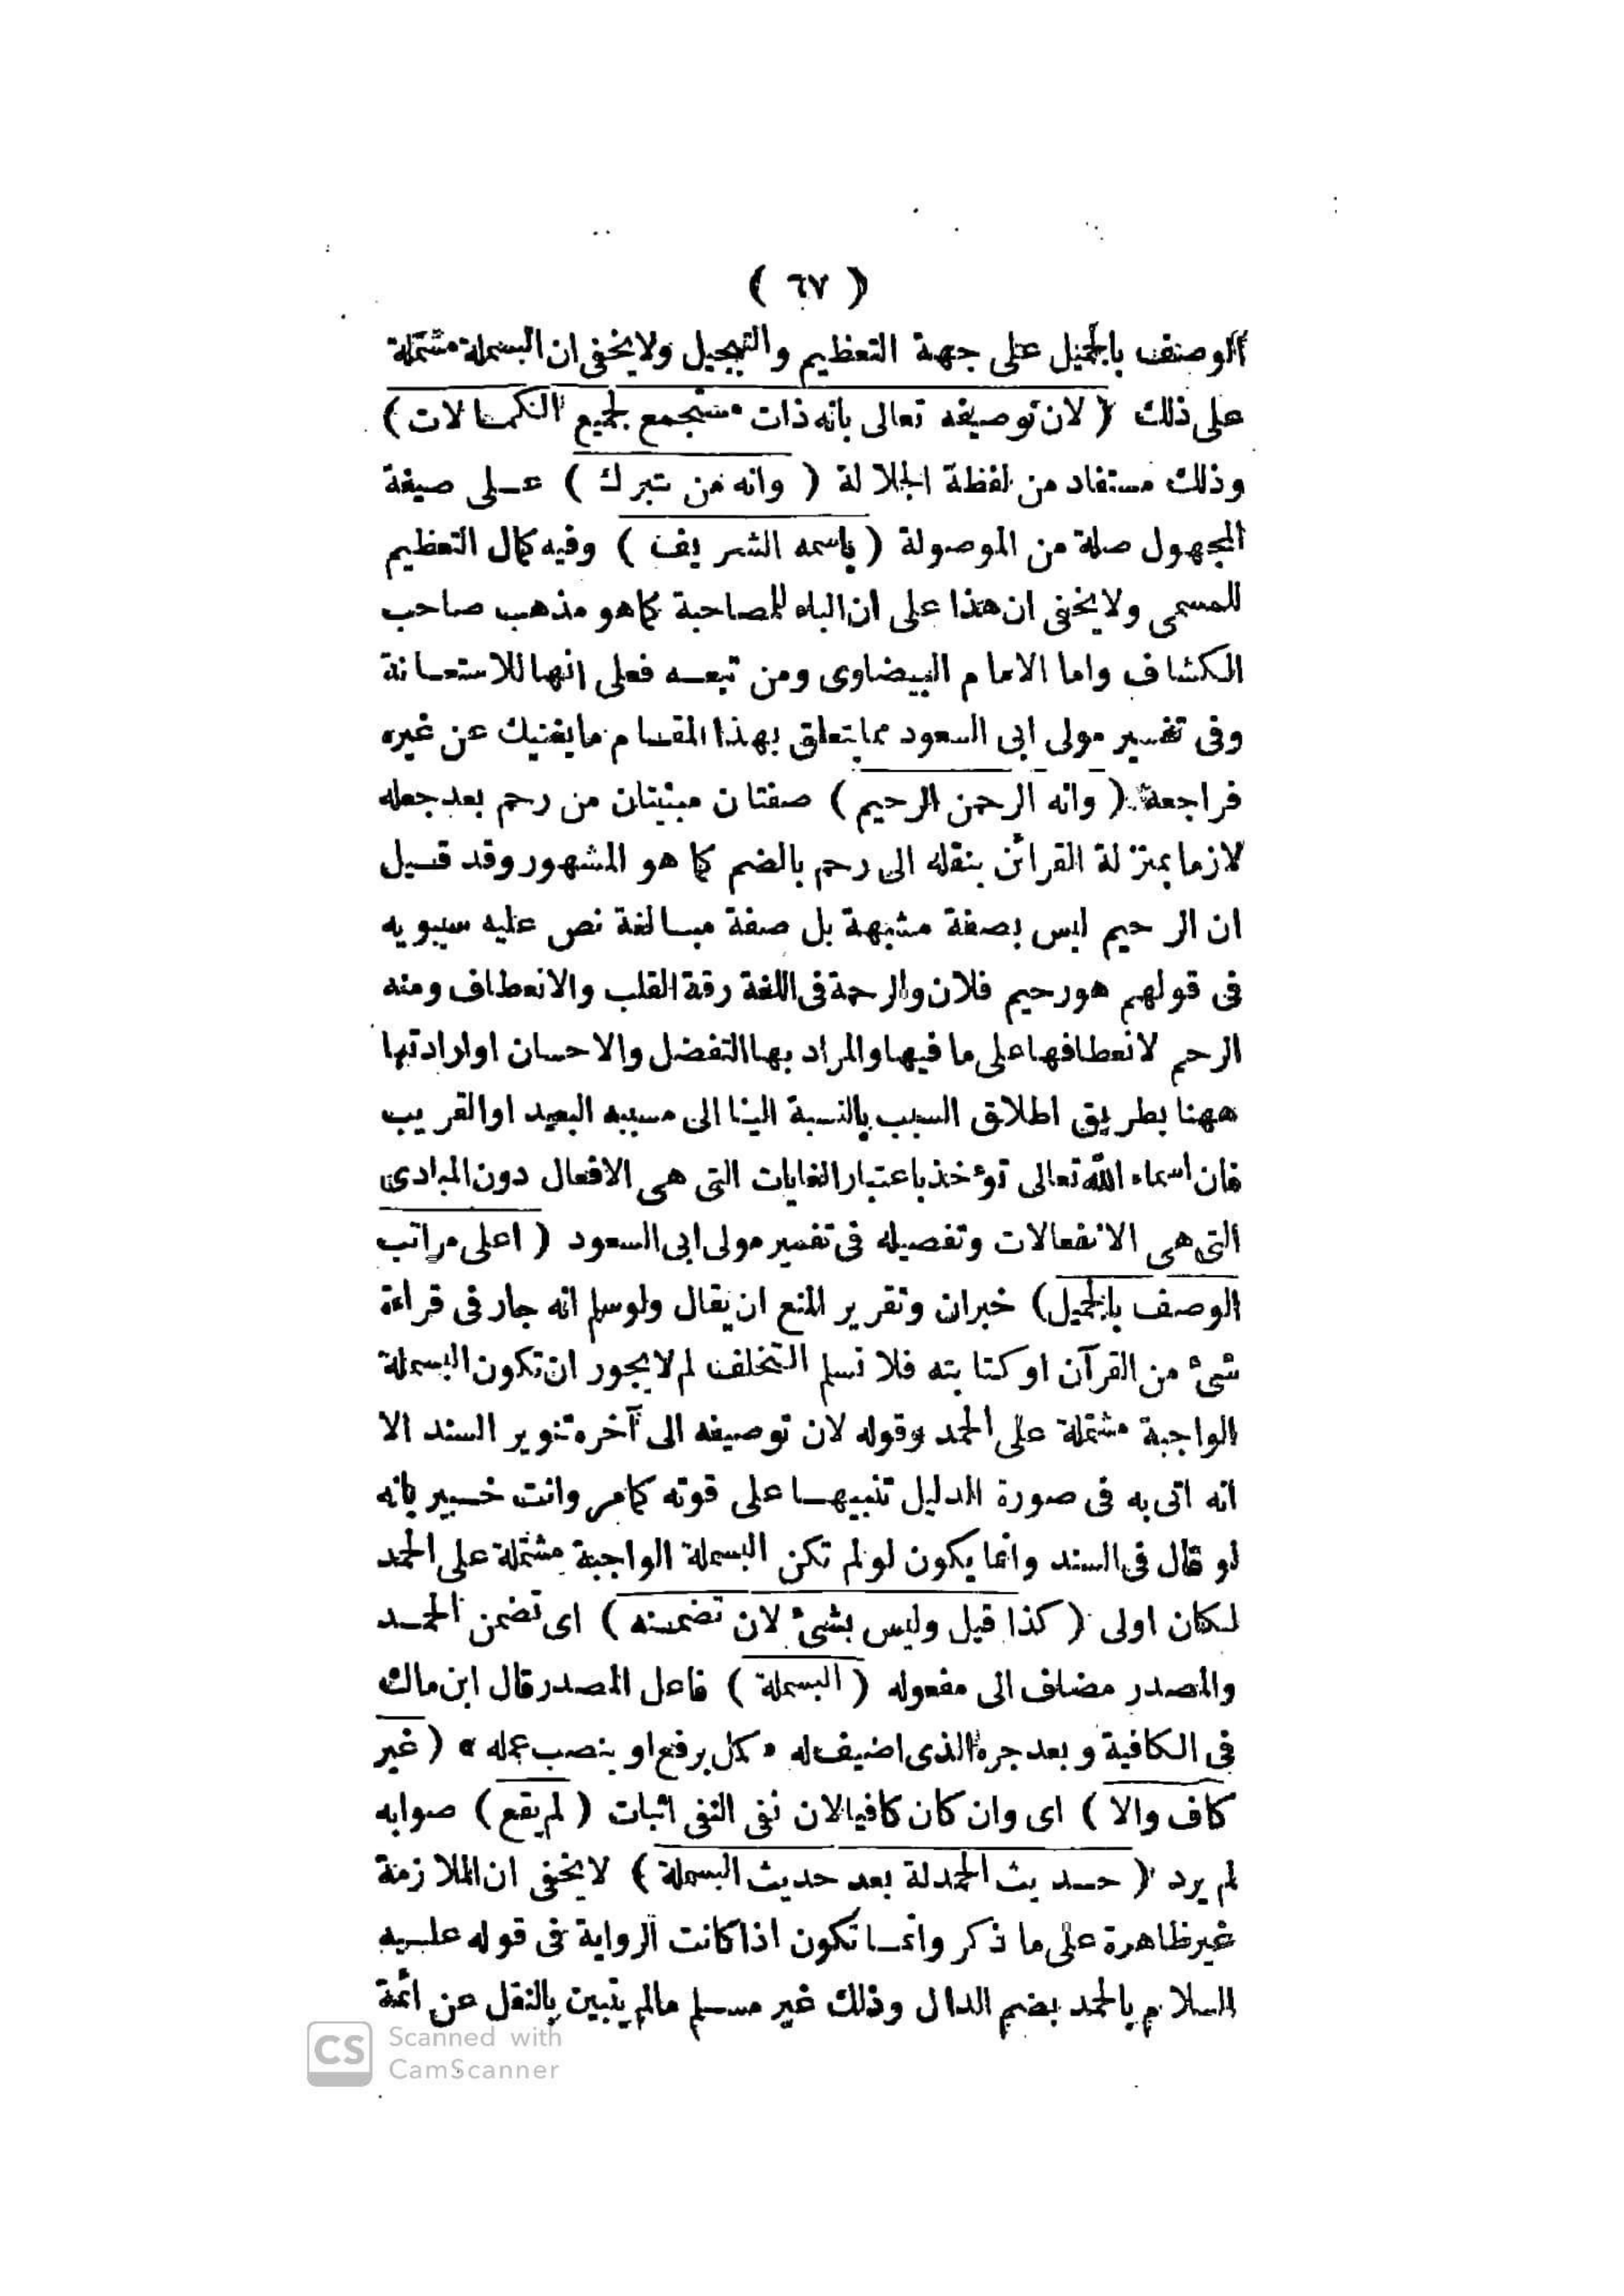 ( ٦٧ )
الوصف بالجميل على جهة التعظيم والتبجيل ولا يخفى ان البسملة مشتملة
على ذلك ( لان توصيفه تعالى بانه ذات مستجمع لجميع الكمالات )
وذلك مستفاد من لفظة الجلالة ( وانه من تبرك ) على صيغة
المجهول صلة من الموصولة ( باسمه الشريف ) وفيه كمال التعظيم
للمسمى ولا يخفى ان هذا على ان الباء للمصاحبة كما هو مذهب صاحب
الكشاف واما الامام البيضاوى ومن تبعه فعلى انها للاستعانة
وفى تفسير مولى ابى السعود مما يتعلق بهذا المقام ما يغنيك عن غيره
فراجعه ( وانه الرحمن الرحيم ) صفتان مبنيتان من رحم بعد جعله
لازما بمنزلة القرائن بنقله الى رحم بالضم كما هو المشهور وقد قيل
ان الرحيم ليس بصفة مشبهة بل صفة مبالغة نص عليه سيبويه
فى قولهم هو رحيم فلان والرحمة فى اللغة رقة القلب والانعطاف ومنه
الرحم لانعطافها على ما فيها والمراد بها التفضل والاحسان او ارادتها
ههنا بطريق اطلاق السبب بالنسبة الينا الى مسببه البعيد او القريب
فان اسماء الله تعالى تؤخذ باعتبار الغايات التى هى الافعال دون المبادى
التى هى الانفعالات وتفصيله فى تفسير مولى ابى السعود ( اعلى مراتب
الوصف بالجميل ) خبران وتقرير المنع ان يقال ولو سلم انه جار فى قراءة
شئ من القرآن او كتابته فلا نسلم التخلف لم لا يجور ان تكون البسملة
الواجبة مشتملة على الحمد وقوله لان توصيفه الى آخره تنوير السند الا
انه اتى به فى صورة الدليل تنبيها على قوته كما مر وانت خبير بانه
لو قال فى السند وانما يكون لو لم تكن البسملة الواجبة مشتملة على الحمد
لكان اولى ( كذا قيل وليس بشئ لان تضمنه ) اى تضمن الحمد
والمصدر مضاف الى مفعوله ( البسملة ) فاعل المصدر قال ابن مالك
فى الكافية و بعد جره الذى اضيف له * كمل برفع او بنصب عمله * ( غير
كاف والا ) اى وان كان كافيا لان نفى النفى اثبات ( لم يقع ) صوابه
لم يرد ( حديث الحمدلة بعد حديث البسملة ) لا يخفى ان الملازمة
غير ظاهرة على ما ذكر وانما تكون اذا كانت الرواية فى قوله عليه
السلام بالحمد بضم الدال وذلك غير مسلم مالم يتبين بالنقل عن ائمة
CS Scanned with
CamScanner